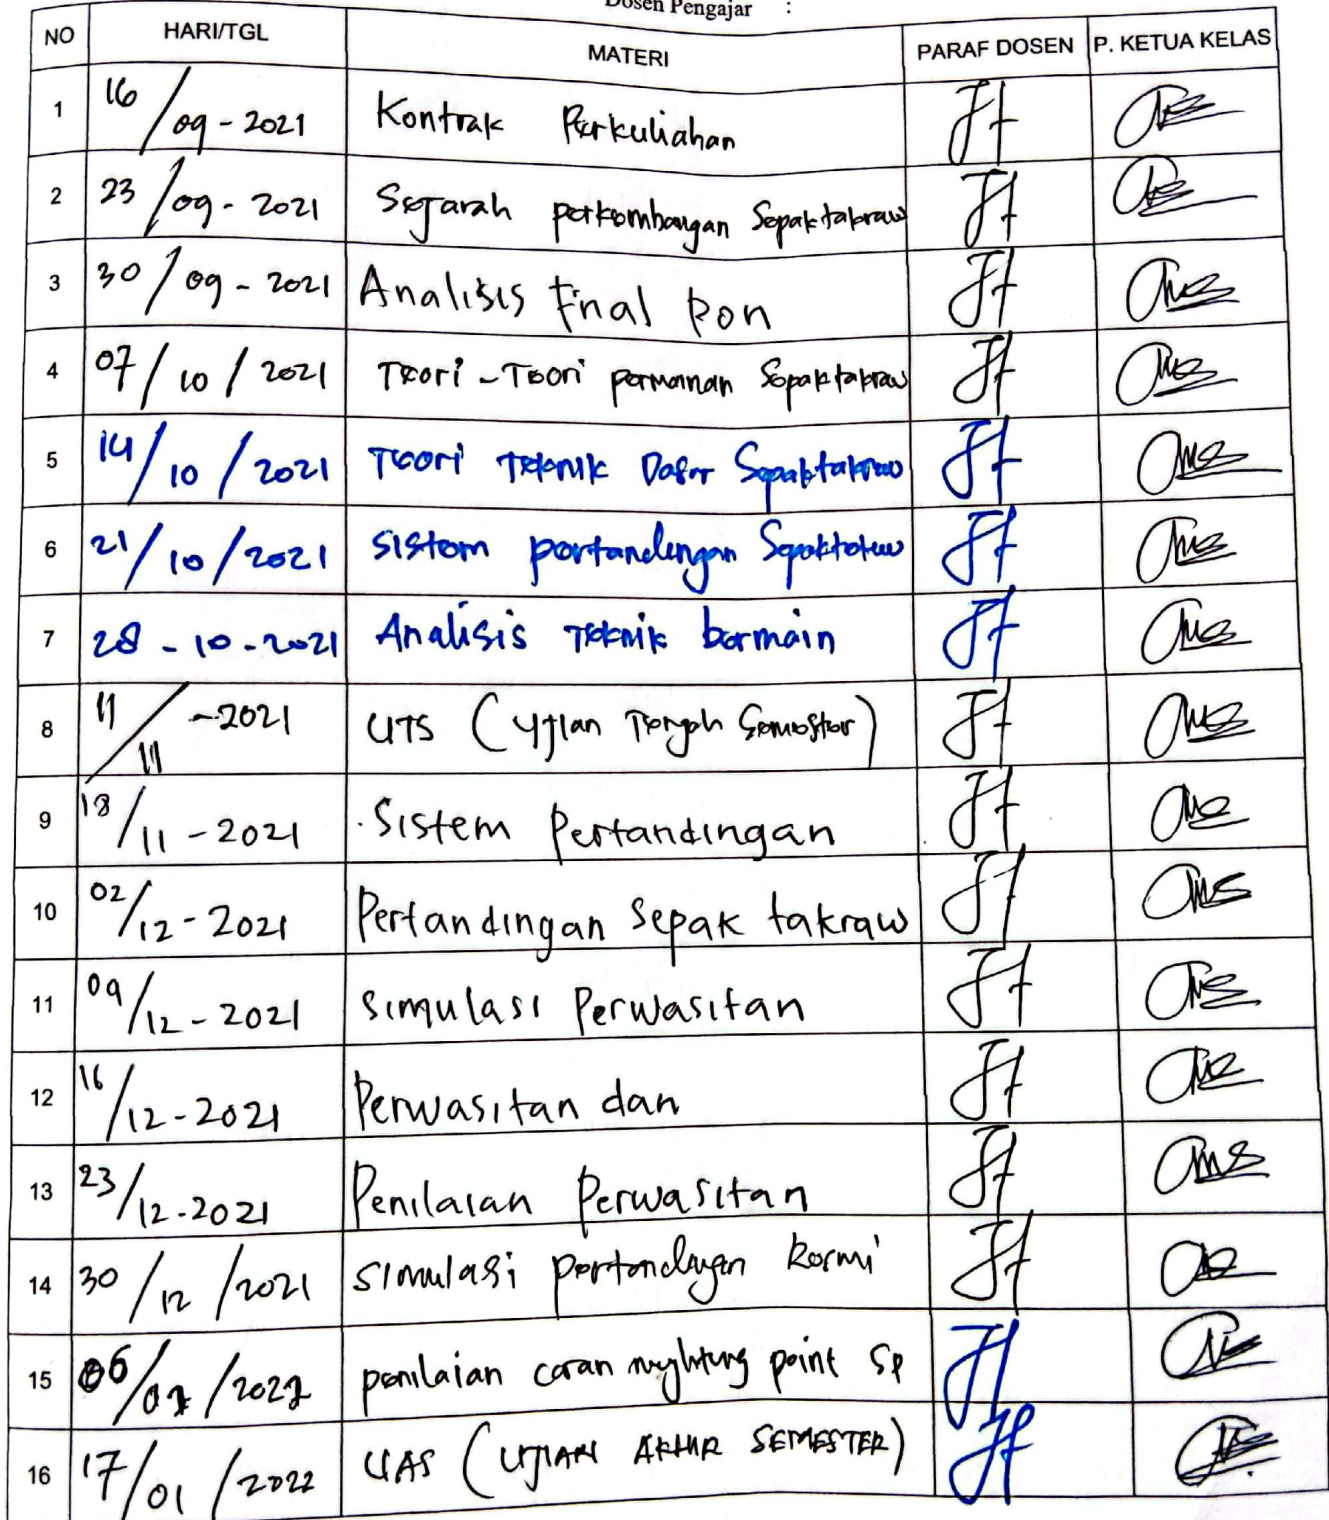 Dosen Pengajar :
NO HARI/TGL MATERI PARAF DOSEN P. KETUA KELAS
1 16/09-2021 Kontrak Perkuliahan
2 23/09-2021 Sejarah perkembangan Sepaktakraw
3 30/09-2021 Analisis Final Pon
4 07/10/2021 Teori-Teori permainan Sepaktakraw
5 14/10/2021 Teori Teknik Dasar Sepaktakraw
6 21/10/2021 Sistem pertandingan Sepaktakraw
7 28-10-2021 Analisis Teknik bermain
8 11/11-2021 UTS (Ujian Tengah Semester)
9 18/11-2021 Sistem Pertandingan
10 02/12-2021 Pertandingan Sepak takraw
11 09/12-2021 Simulasi Perwasitan
12 16/12-2021 Perwasitan dan
13 23/12-2021 Penilaian Perwasitan
14 30/12/2021 Simulasi pertandingan kormi
15 06/01/2022 penilaian point
16 17/01/2022 UAS (UJIAN AKHIR SEMESTER)